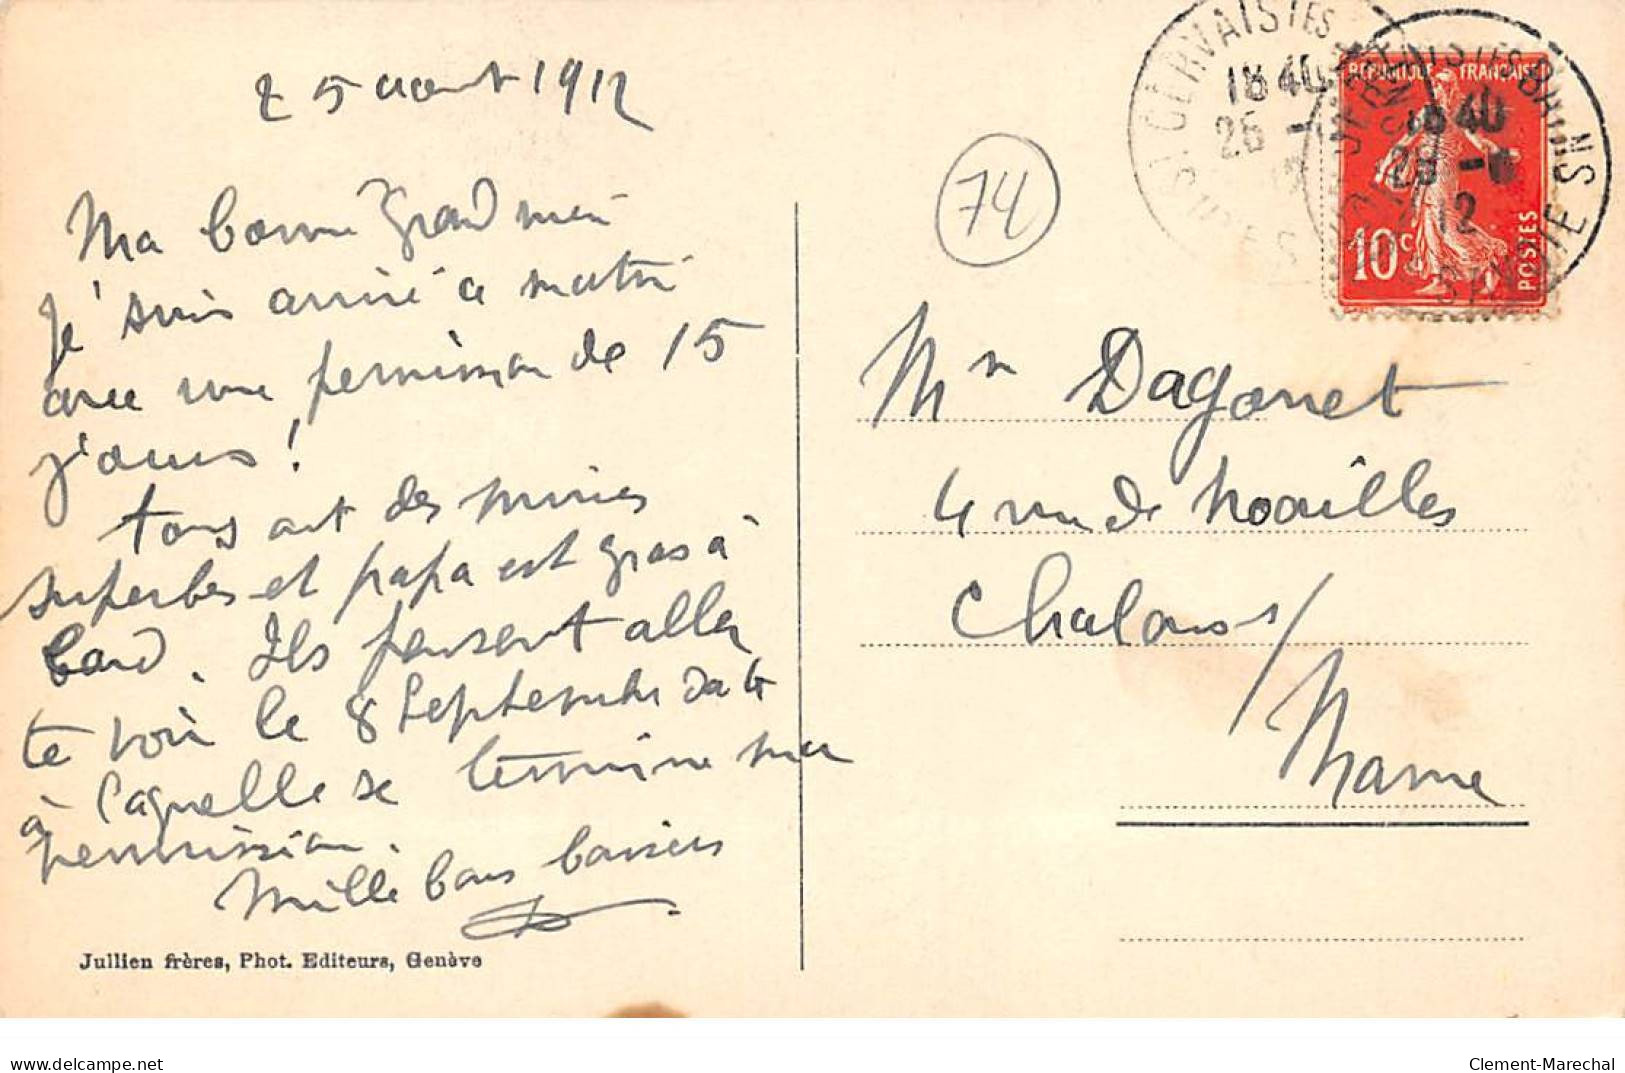 25 aout 1912
Ma bonne Grand mère
je suis arrivé ce matin
avec une permission de 15
jours !
tous ont des mines
superbes et papa est gras à
lard. Ils pensent aller
te voir le 8 Septembre date
à laquelle se termine ma
permission.
Mille bons baisers
Jullien frères, Phot. Editeurs, Genève
74
ST GERVAIS LES BAINS
18 40
26 -8
12
HTE SAVOIE
ST GERVAIS LES BAINS
18 40
26 -8
12
SAVOIE
REPUBLIQUE FRANÇAISE
10c
POSTES
Mme Dagonet
4 rue de Noailles
Chalons s/
Marne
delcampe.net
Clement-Marechal